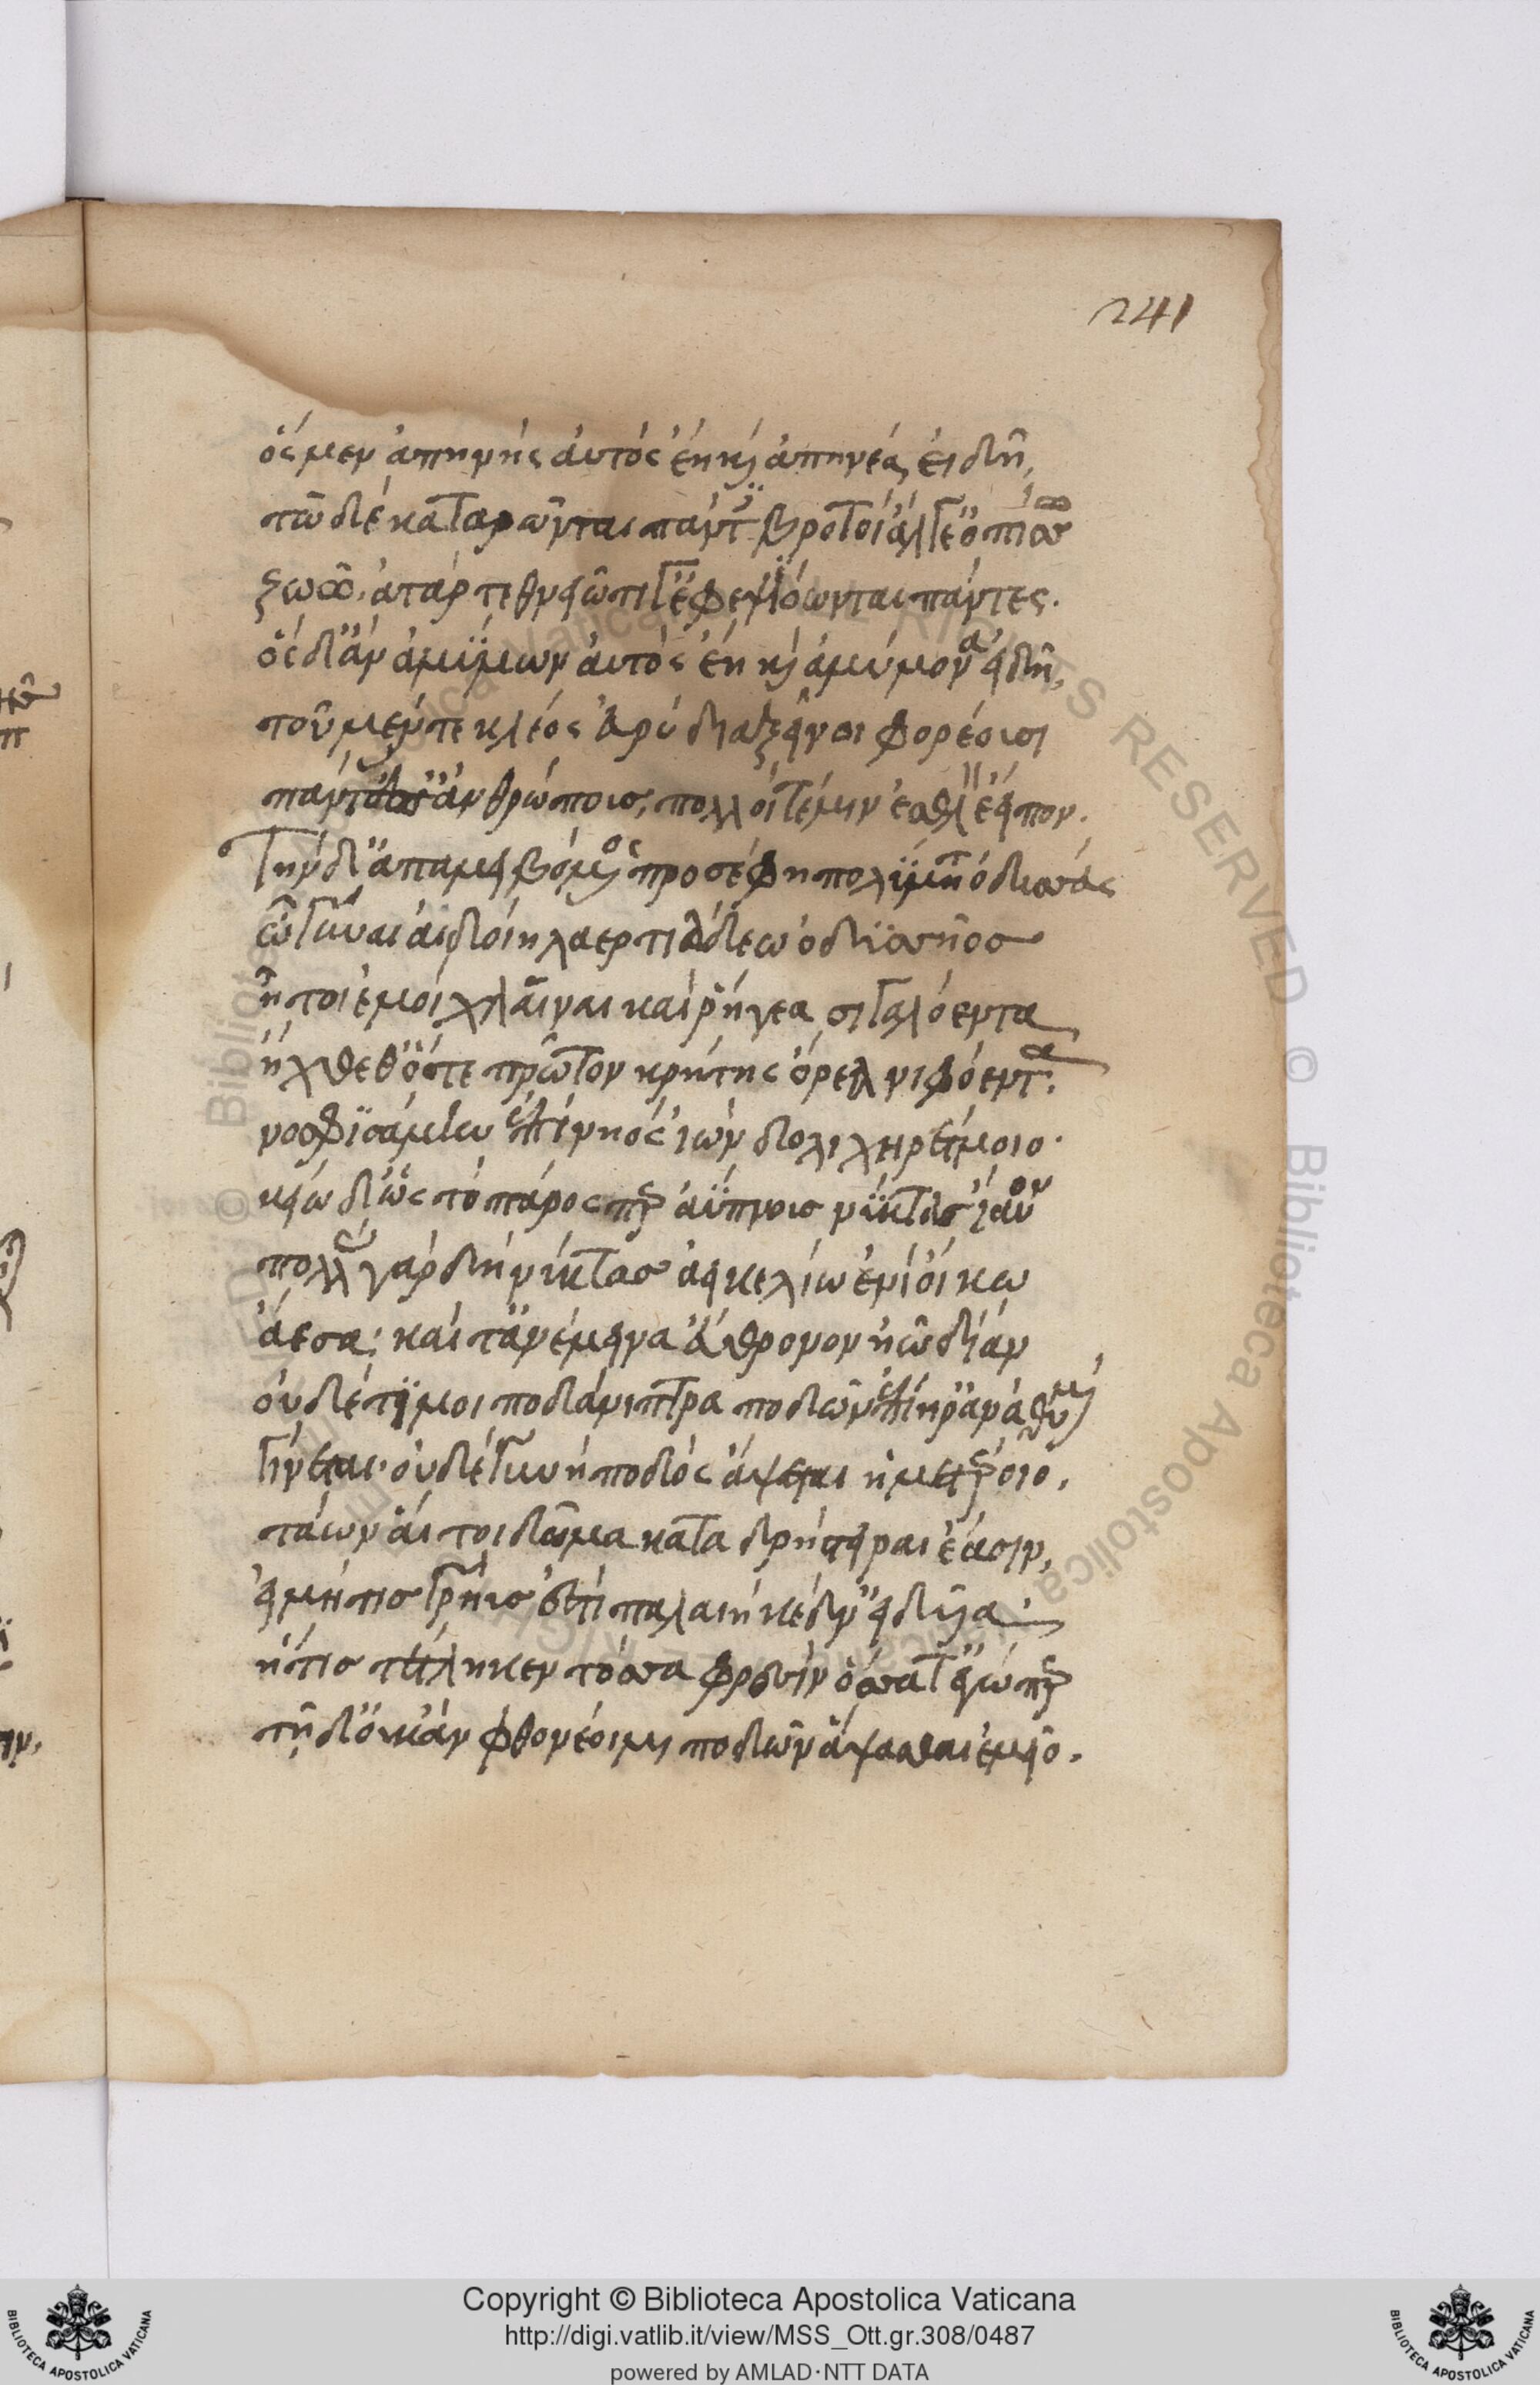 241
ὃς μὲν ἀπηνὴς αὐτὸς ἔη καὶ ἀπηνέα εἰδῆ,
τῶ δὲ καταρῶνται πάντες βροτοὶ ἄλγε' ὀπίσσω
ζωῶ· ἀτὰρ τεθνεῶτι γ' ἐφεψιόωνται πάντες.
ὃς δ' ἂν ἀμύμων αὐτὸς ἔη καὶ ἀμύμονα εἰδῆ,
τοῦ μέν τε κλέος εὐρὺ διὰ ξεῖνοι φορέουσι
πάντας ἀνθρώπους, πολλοί τέ μιν ἐσθλὸν ἔειπον.
Τὴν δ' ἀπαμειβόμενος προσέφη πολύμητις ὀδυσσεύς
ὦ γύναι αἰδοίη λαερτιάδεω ὀδυσσῆος
ἤτοι ἐμοὶ χλαῖναι καὶ ῥήγεα σιγαλόεντα
ἤχθεθ' ὅτε πρῶτον κρήτης ὄρεα νιφόεντα.
νοσφισάμην ἐπὶ νηὸς ἰὼν δολιχηρέτμοιο.
κείω δ' ὡς τὸ πάρος περ ἀύπνους νύκτας ἴαυον
πολλὰς γὰρ δὴ νύκτας ἀεικελίω ἐνὶ οἴκω
ἄεσα· καί τ' ἀνέμεινα ἐύθρονον ἠῶ δῖαν
οὐδέ τί μοι ποδάνιπτρα ποδῶν ἐπιήρανα θυμῶ
γίνεται· οὐδὲ γυνὴ ποδὸς ἅψεται ἡμετέροιο,
τάων αἵ τοι δῶμα κατα δρήστειραι ἔασιν,
εἰ μή τις γρηῦς ἐστὶ παλαιὴ κεδν' εἰδυῖα·
ἥτις τέτληκεν τόσσα φρεσὶν ὅσσα τ' ἐγώ περ
τῇ δ' οὐκ ἂν φθονέοιμι ποδῶν ἅψασθαι ἐμεῖο.
Copyright © Biblioteca Apostolica Vaticana
http://digi.vatlib.it/view/MSS_Ott.gr.308/0487
powered by AMLAD·NTT DATA